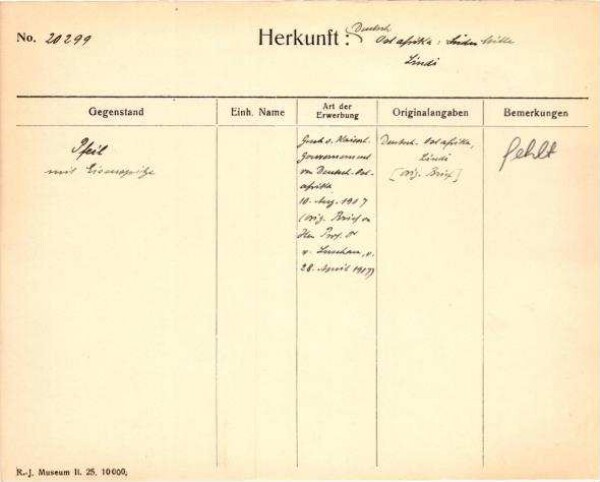 No. 20299
Herkunft: Deutsch
Ostafrika:
Lindi
Gegenstand
Einh. Name
Art der
Erwerbung
Originalangaben
Bemerkungen
Pfeil
mit Eisenspitze
Gesch. v. Kaiserl.
Gouvernement
von Deutsch-Ost-
afrika
10. Aug. 1917
(orig. Brief v.
Hrn. Prof. Dr
v. Luschan, v.
28. April 1917)
Deutsch. Ostafrika,
Lindi
[orig. Brief]
fehlt
R.-J. Museum II. 25. 10 000.